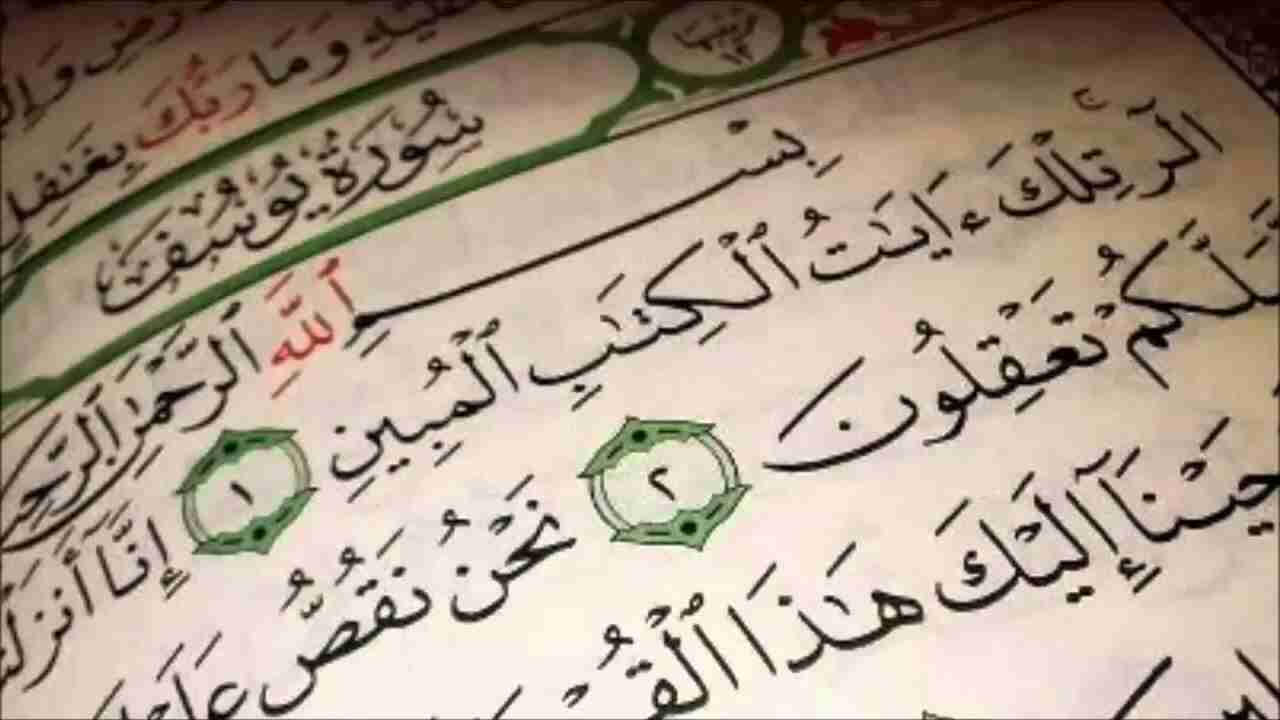 وَمَا رَبُّكَ بِغَـٰفِلٍ
سُورَةُ يُوسُفَ
بِسْمِ ٱللَّهِ ٱلرَّحْمَـٰنِ ٱلرَّحِيمِ
الٓر تِلْكَ ءَايَـٰتُ ٱلْكِتَـٰبِ ٱلْمُبِينِ ١ إِنَّآ أَنزَلْنَـٰ
لَّعَلَّكُمْ تَعْقِلُونَ ٢ نَحْنُ نَقُصُّ عَلَ
حَيْنَآ إِلَيْكَ هَـٰذَا ٱلْقُرْ